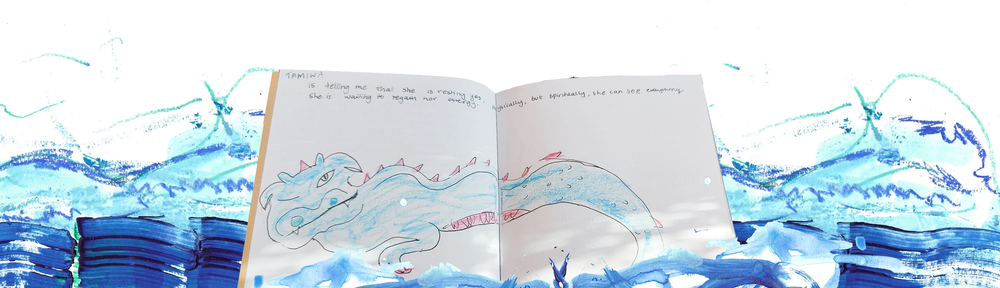 TAMIWA
is telling me that she is resting yes, physically, but spiritually, she can see everything
She is waiting to regain her energy.